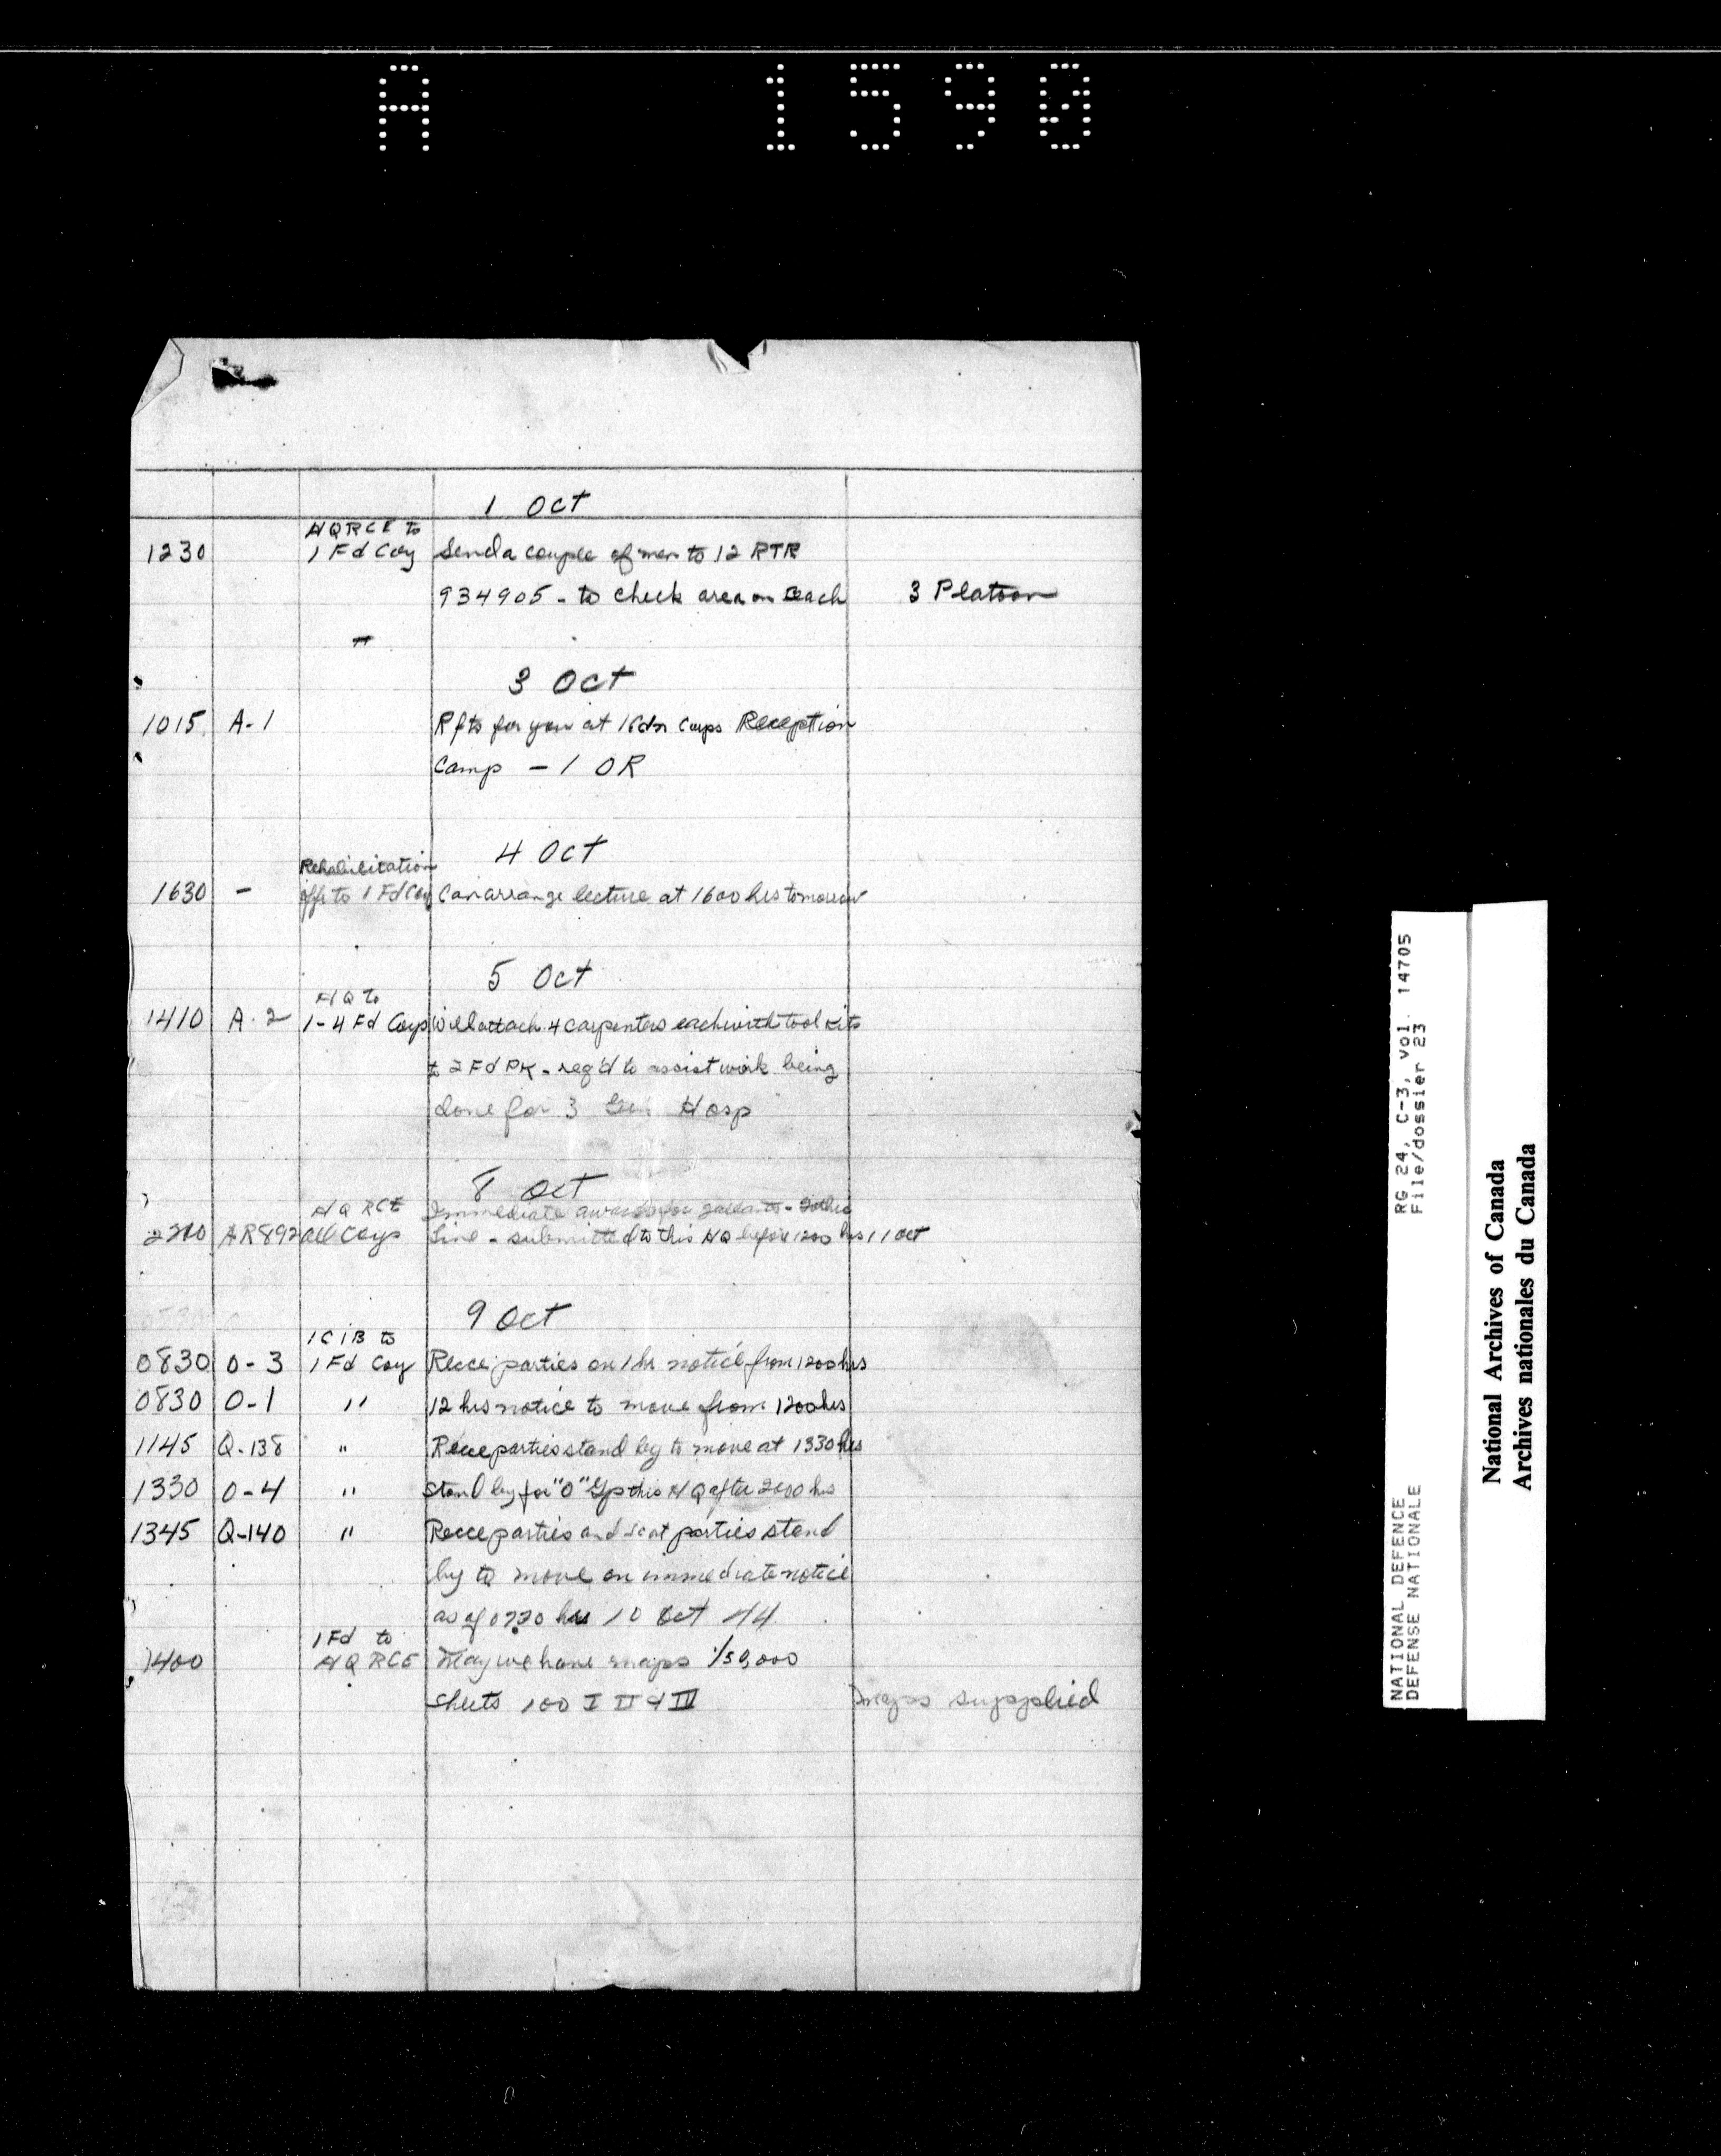 A 1590
1 Oct
HQ RCE to
1230 1 Fd Coy Send a couple of men to 12 RTR
934905 - to check area on beach 3 Platoon
"
3 Oct
1015 A-1 Rfts for you at 1 Cdn Corps Reception
Camp - 1 OR
4 Oct
Rehabilitation
1630 - offr to 1 Fd Coy Can arrange lecture at 1600 hrs tomorrow
5 Oct
HQ to
1410 A-2 1-4 Fd Coys Will attach 4 carpenters each with tool kits
to 2 Fd PK - req'd to assist work being
done for 3 Gen Hosp
8 Oct
HQ RCE Immediate awards for - Gothic
AR892 all Coys Line - submitted to this HQ before 1200 hrs 11 Oct
9 Oct
1 CIB to
0830 O-3 1 Fd Coy Recce parties on 1 hr notice from 1200 hrs
0830 O-1 " 12 hrs notice to move from 1200 hrs
1145 Q-138 " Recce parties stand by to move at 1330 hrs
1330 O-4 " Stand by for "O" Gp this HQ after 2000 hrs
1345 Q-140 " Recce parties and parties stand
by to move on immediate notice
as of 0730 hrs 10 Oct 44
1 Fd to
1400 HQ RCE May we have maps 1/50,000
Sheets 100 I II & IV Maps supplied
NATIONAL DEFENCE RG 24, C-3, Vol. 14705
DEFENSE NATIONALE File/dossier 23
National Archives of Canada
Archives nationales du Canada